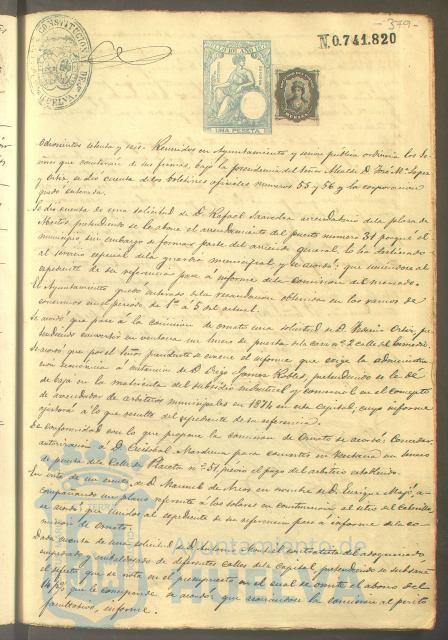 -379-
N.0.741.820
CONSTITUCION
HUELVA
SELLO DE AÑO
UNA PESETA
ochocientos setenta y seis. Reunidos en Ayuntamiento y sesion pública ordinaria los Se-
ñores que constan de sus firmas, bajo la presidencia del Señor Alcalde D. José Mª Lopez
y Ortiz, se dió cuenta de los boletines oficiales numeros 55 y 56 y la corporacion
quedó enterada.
Se dió cuenta de una solicitud de D. Rafael Saavedra arrendatario de la plaza de
Abastos, pretendiendo se le abone el arrendamiento del puesto numero 31 porque el
municipio sin embargo de formar parte del arriendo general, lo ha destinado
al servicio especial de la guardia municipal y se acordó: que uniendose al
espediente de su referencia pase á informe de la Comision del mercado.
El Ayuntamiento quedó enterado de la recaudacion obtenida en los ramos de
consumos en el periodo de 1º á 5 del actual.
Se acordó que pase á la comision de ornato una solicitud de D. Ortiz, pre-
tendiendo convertir en ventana un hueco de puerta de la casa nº 2 calle del
Se acordó que por el Señor presidente se evacue el informe que exige la administra-
cion económica á instancia de D. Diego Garcia Robles, pretendiendo se le dé
de baja en la matricula del subsidio industrial y comercial en el concepto
de arrendador de arbitrios municipales en 1874 en esta Capital, cuyo informe
ajustará á lo que resulte del espediente de su referencia.
De conformidad con lo que propone la comision de Ornato se acordó: Conceder
autorizacion á D. Cristobal para convertir en ventana un hueco
de puerta de la Calle nº 31 previo el pago del arbitrio establecido.
En vista de un escrito de D. Manuel de en nombre de D. Enrique a-
compañando un plano referente á los solares en construccion al sitio del
se acordó que uniendose al espediente de su referencia pase á informe de la co-
mision de Ornato.
Dada cuenta de una solicitud de D. contratista del adoquinado
empedrado y embaldosado de diferentes calles de la Capital, pretendiendo se subsane
el defecto que se nota en el presupuesto en el cual se omite el abono del
14 p% que le corresponde se acordó que asociandose la comision al perito
facultativo, informe.
Ayuntamiento de
HUELVA